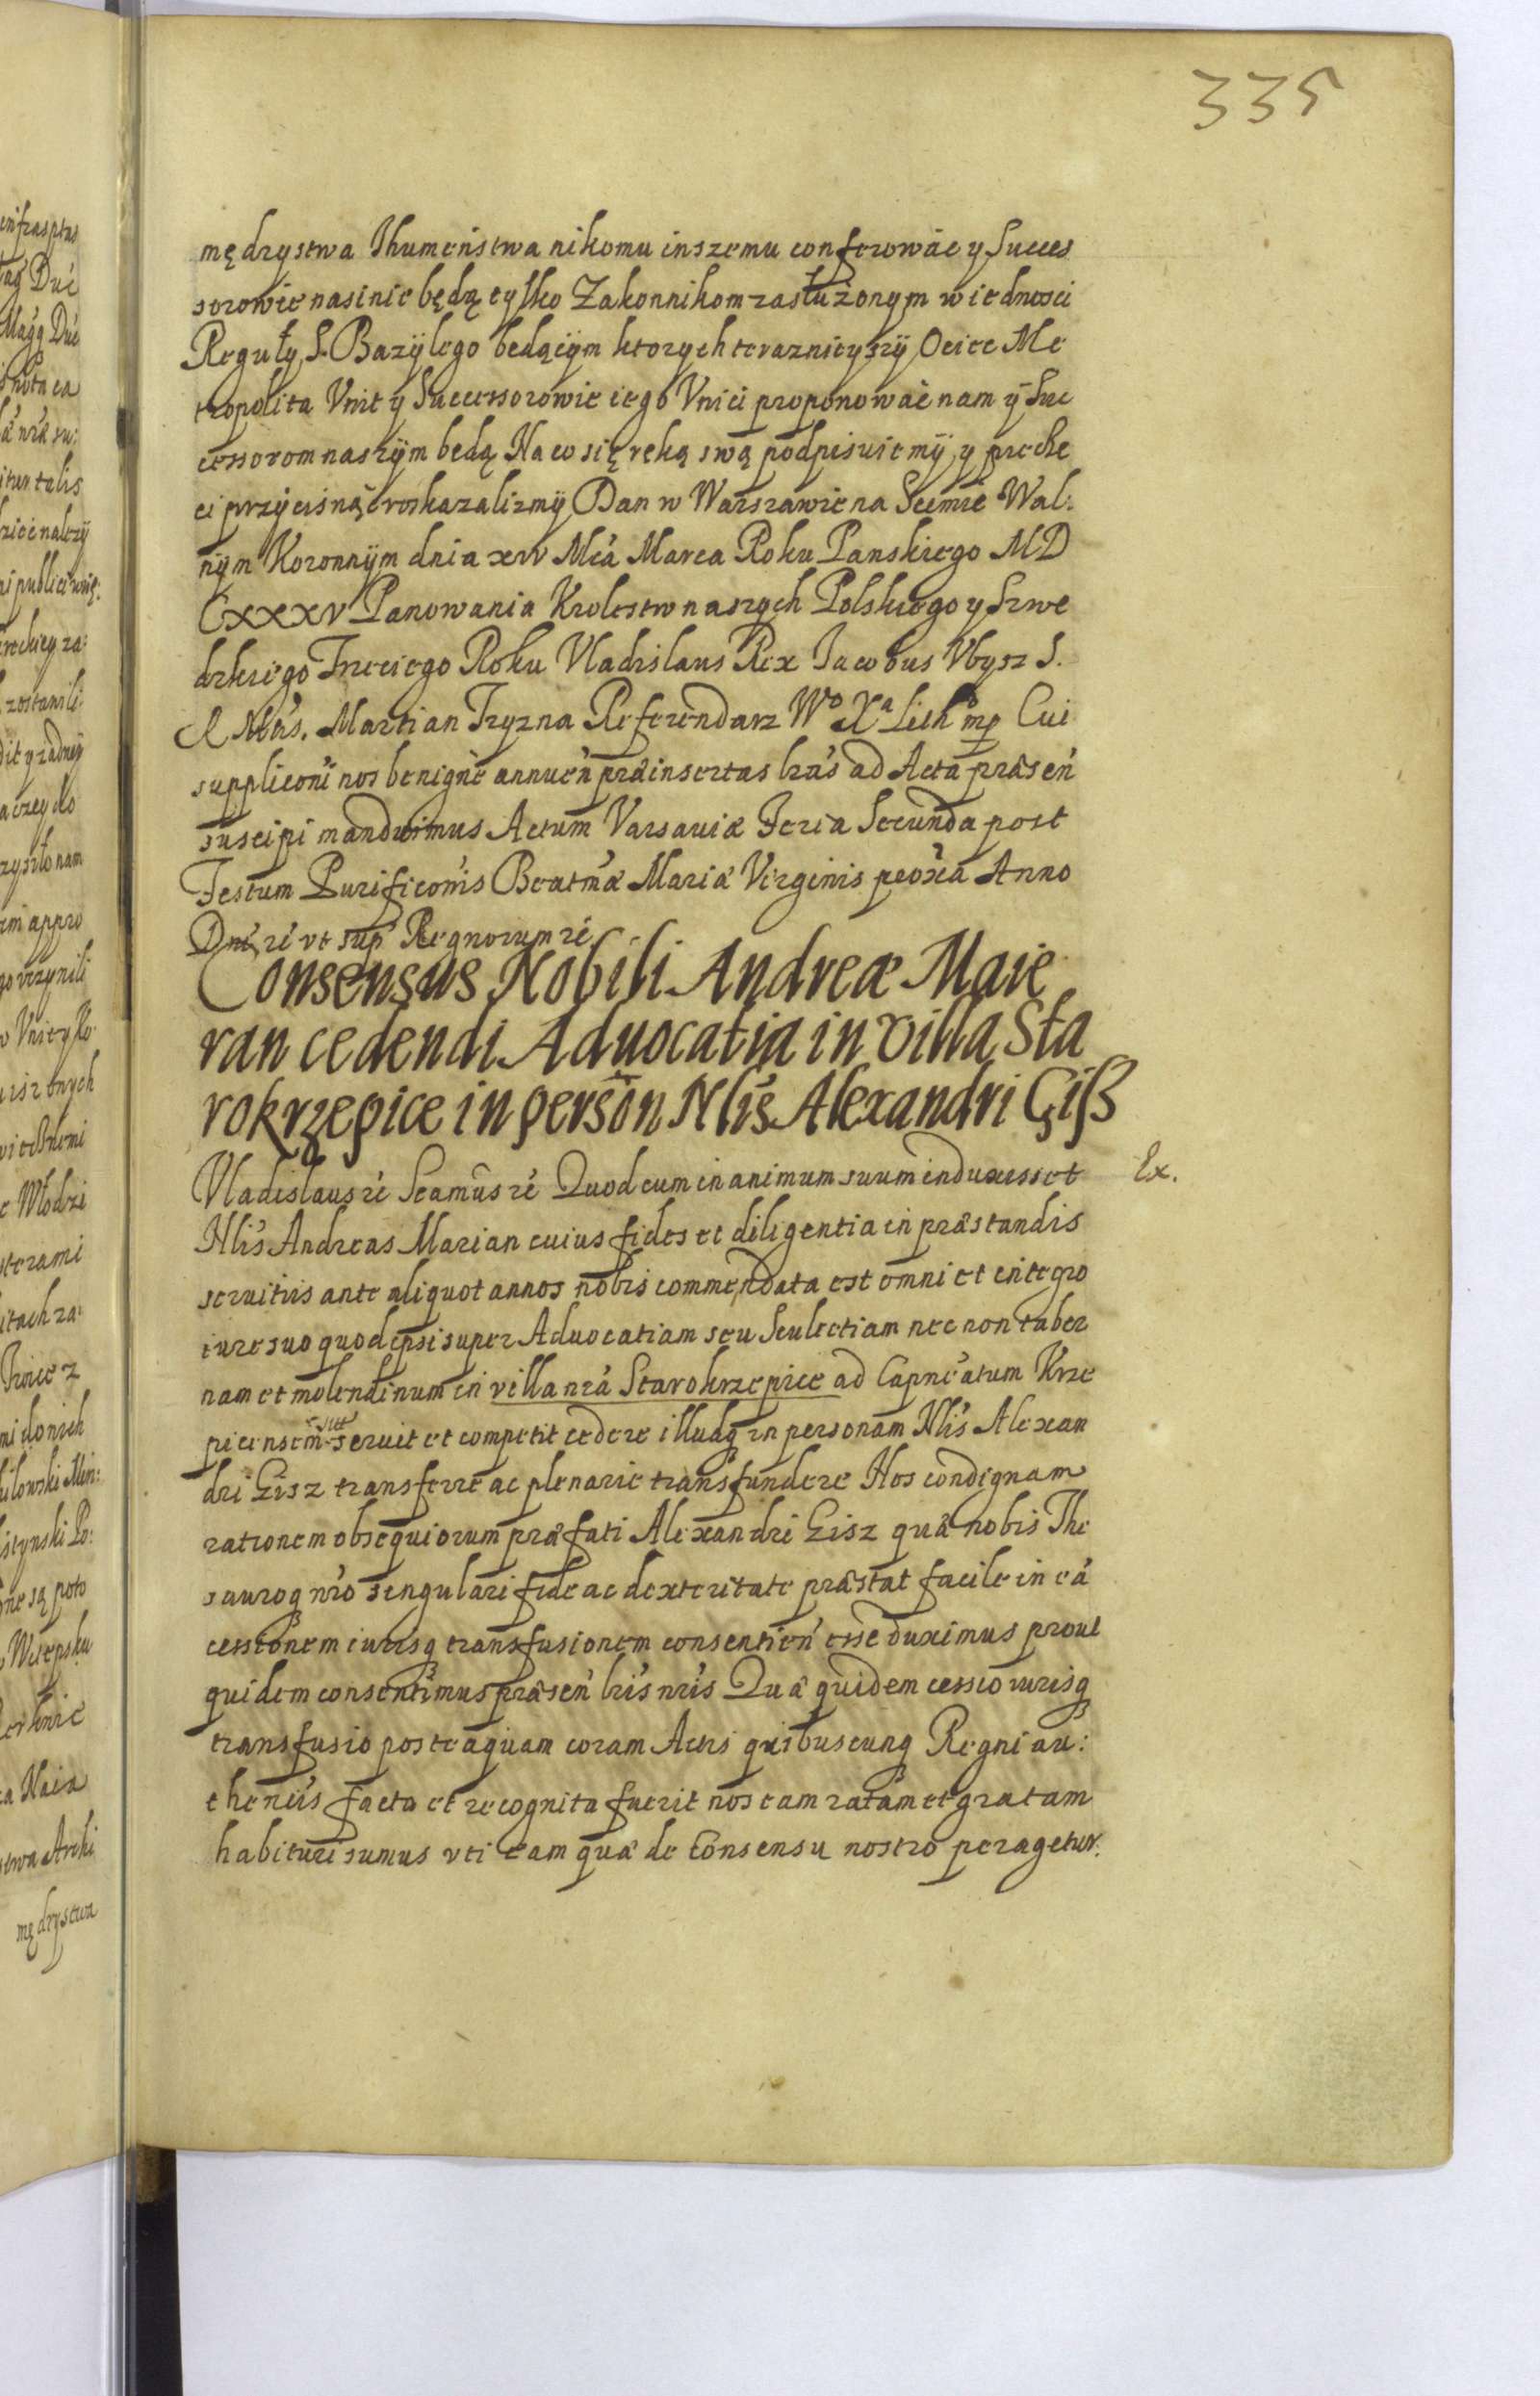 335
mędrystwa Ihumeństwa nikomu inszemu conferowáć y Succes
sorowie nasi nie będą tylko Zakonnikom zasłużonym w iednosci
Reguły S. Bazÿlego będącÿm ktorych teraznieyszÿ Ociec Me
tropolita Vnit y Successorowie iego Vnici proponowáć nam ÿ Suc
cessorom naszÿm bedą Na co się ręką swą podpisuiemÿ y pieczę
ci przÿcisnąć roskazalizmÿ Dan w Warszawie na Seimie Wal:
nÿm Koronnÿm dnia xiv Mcá Marca Roku Panskiego MD
CXXXV Panowania Krolestw naszych Polskiego y Szwe
dzkiego Trzeciego Roku Vladislaus Rex Jacobus Vbysz S.
R Mtis. Martian Tryzna Referendarz Wo Xa Lith mp Cui
suppliconi nos benignè annuen præinsertas lras ad Acta præsen
suscipi mandauimus Actum Varsauiæ Feria Secunda post
Festum Purificonis Beatmæ Mariæ Virginis proxa Anno
Dni rc vt sup Regnorum rc
Consensus Nobili Andreæ Maie
ran cedendi Aduocatia in Villa Sta
rokrzepice in person Nlis Alexandri Giß
Ex.
Vladislaus rc Seamus rc Quod cum in animum suum induxisset
Nlis Andreas Marian cuius fides et diligentia in præstandis
seruitiis ante aliquot annos nobis commendata est omni et integro
iure suo quod ipsi super Aduocatiam seu Scultetiam nec non taber
nam et molendinum in villa nra Starokrzepice ad Capneatum Krze
picensem seruit et competit cedere illudq in personam Nlis Alexan
dri Gisz transferre ac plenarie transfundere Nos condignam
rationem obsequiorum præfati Alexandri Gisz quæ nobis The
sauroq nro singulari fide ac dexteritate præstat facile in eá
cessionem iurisq transfusionem consentien esse duximus prout
quidem consentimus præsen lris nris Quæ quidem cessio iurisq
transfusio posteaquam coram Actis quibuscunq Regni au:
thencis facta et recognita fuerit nos eam ratam et gratam
habituri sumus vti eam quæ de Consensu nostro peragetur.